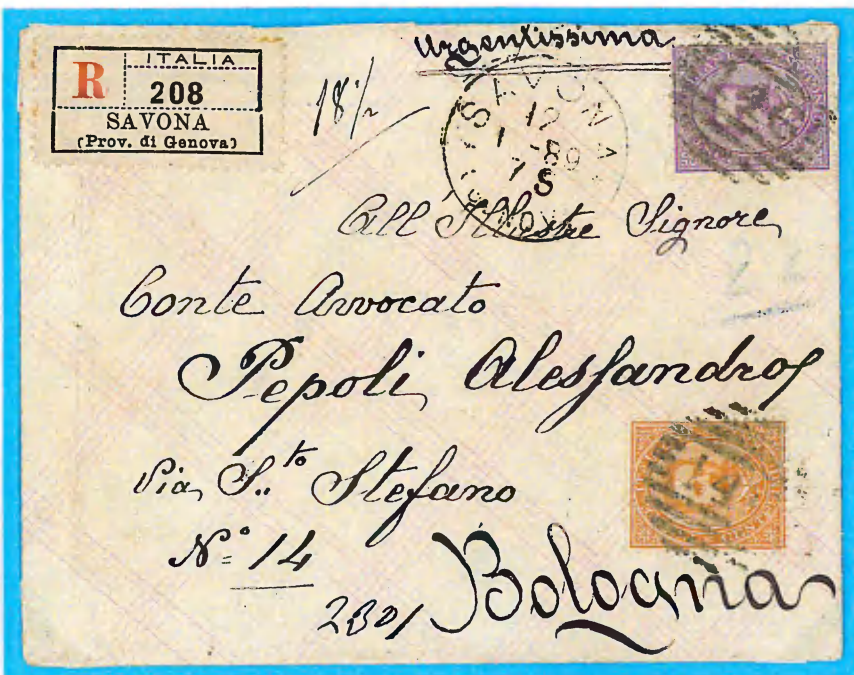 Urgentissima
R
ITALIA
208
SAVONA
(Prov. di Genova)
18½
SAVONA
12
1-89
7 S
All'Illustre Signore
Conte Avvocato
Pepoli Alessandro
Via S.to Stefano
N.º 14
2301
Bologna